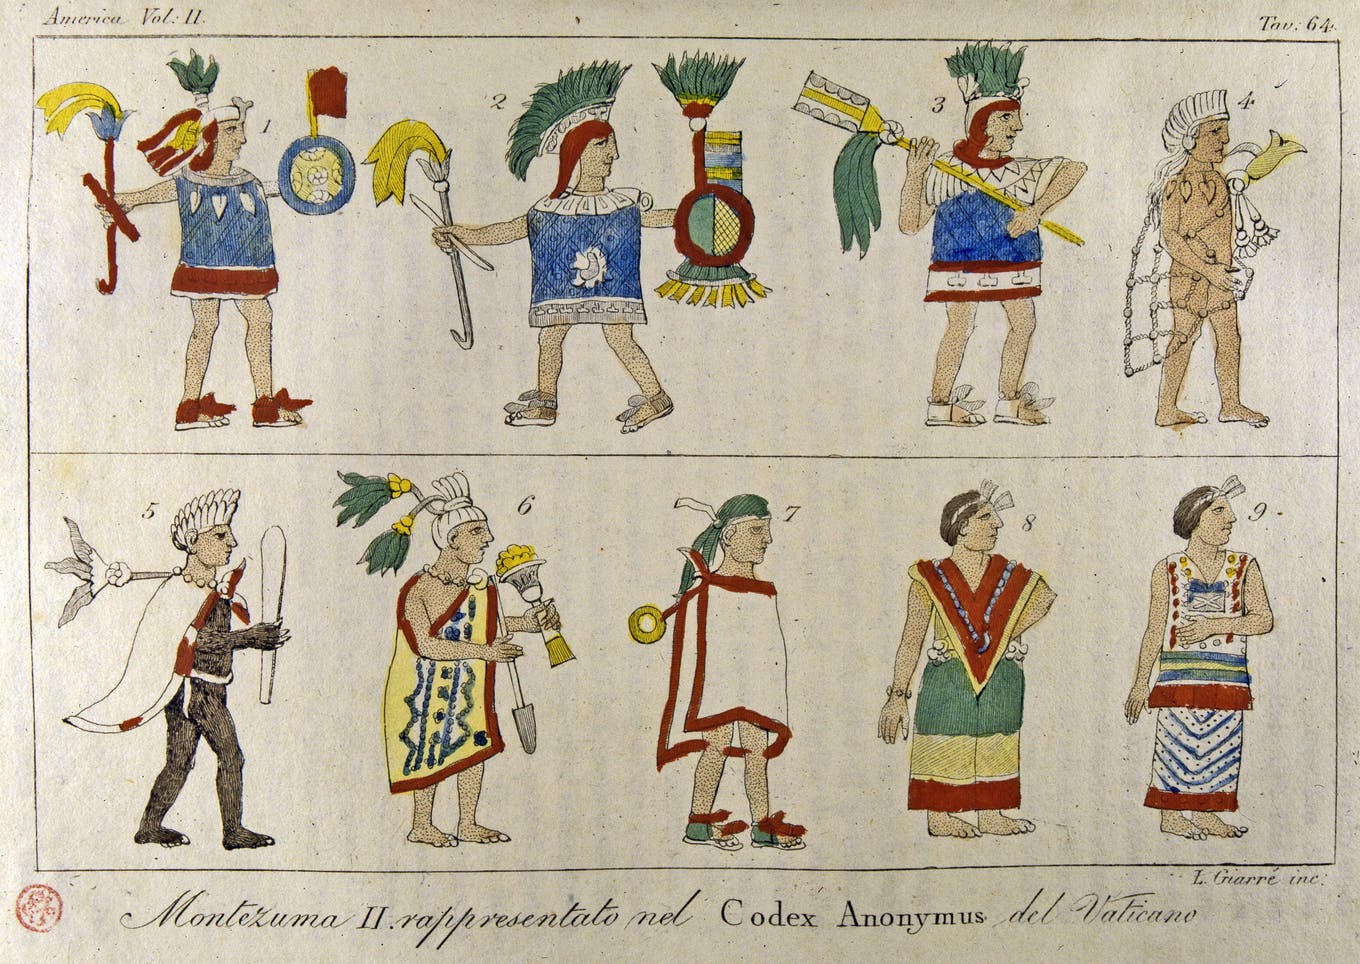 America Vol: II.
Tav: 64.
1
2
3
4
5
6
7
8
9
L. Giarré inc:
Montèzuma II. rappresentato nel Codex Anonymus del Vaticano